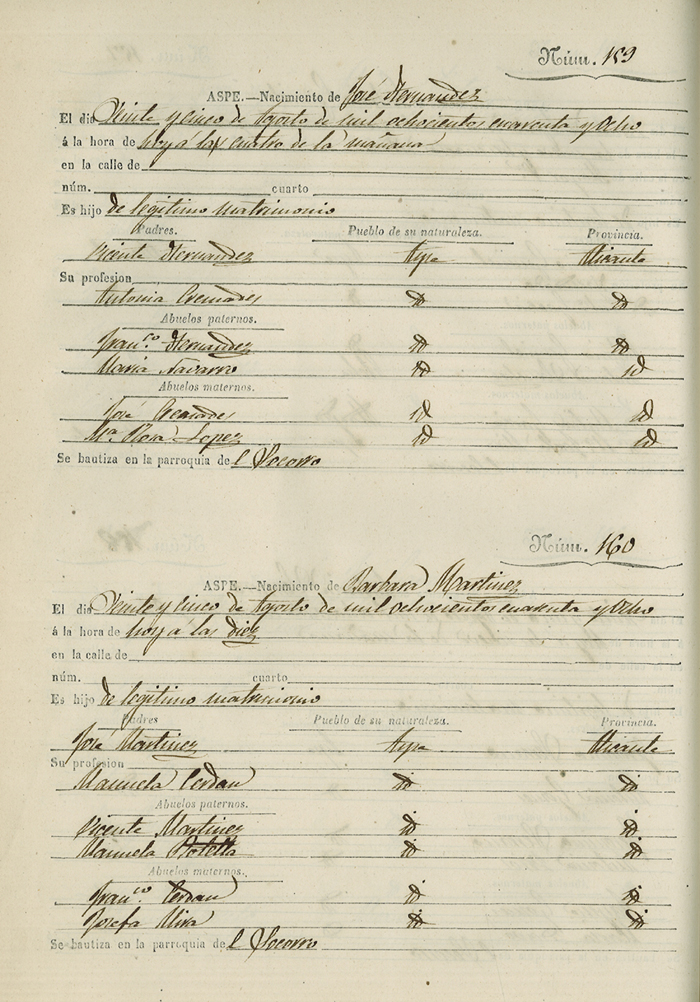 Núm. 159
ASPE.—Nacimiento de José Hernandez
El dia Veinte y cinco de Agosto de mil ochocientos cuarenta y Ocho
á la hora de hoy á las cuatro de la mañana
en la calle de
núm. cuarto
Es hijo de legitimo matrimonio
Padres. Pueblo de su naturaleza. Provincia.
Vicente Hernandez Aspe Alicante
Su profesion
Antonia Cremades id id
Abuelos paternos.
Franco. Hernandez id id
Maria Navarro id id
Abuelos maternos.
José Cremades id id
Ma Rosa Lopez id id
Se bautiza en la parroquia de l Socorro
Núm. 160
ASPE.—Nacimiento de Barbara Martinez
El dia Veinte y cinco de Agosto de mil ochocientos cuarenta y Ocho
á la hora de hoy á las diez
en la calle de
núm. cuarto
Es hijo de legitimo matrimonio
Padres Pueblo de su naturaleza. Provincia.
José Martinez Aspe Alicante
Su profesion
Manuela Cerdan id id
Abuelos paternos.
Vicente Martinez id id
Manuela Botella id id
Abuelos maternos.
Franco. Cerdan id id
Josefa Mira id id
Se bautiza en la parroquia de l Socorro